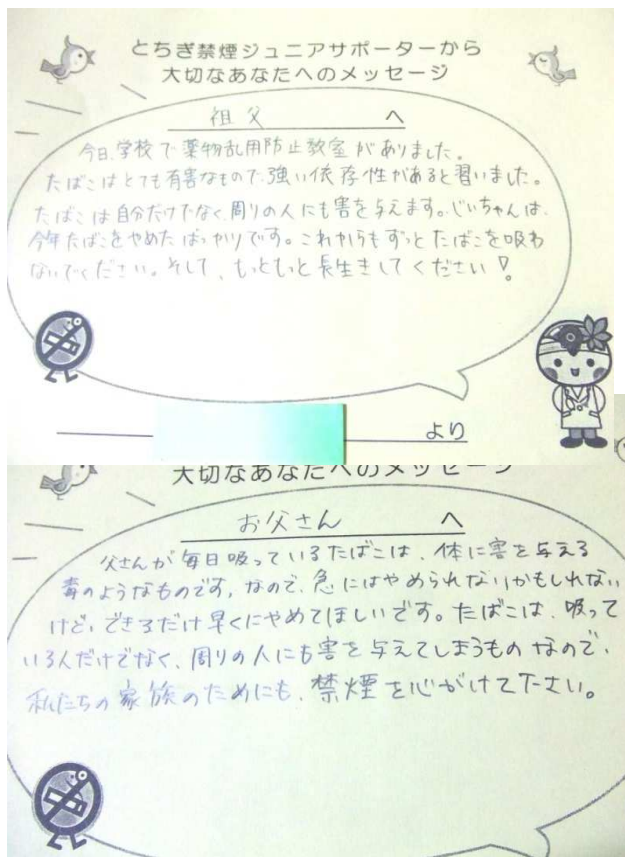 とちぎ禁煙ジュニアサポーターから
大切なあなたへのメッセージ
祖父 へ
今日、学校で薬物乱用防止教室がありました。
たばこはとても有害なもので、強い依存性があると習いました。
たばこは自分だけでなく、周りの人にも害を与えます。じいちゃんは、
今年たばこをやめたばっかりです。これからもずっとたばこを吸わ
ないでください。そして、もっともっと長生きしてください!
より
大切なあなたへのメッセージ
お父さん へ
父さんが毎日吸っているたばこは、体に害を与える
毒のようなものです。なので、急にはやめられないかもしれない
けど、できるだけ早くにやめてほしいです。たばこは、吸って
いる人だけでなく、周りの人にも害を与えてしまうものなので、
私たちの家族のためにも、禁煙を心がけて下さい。